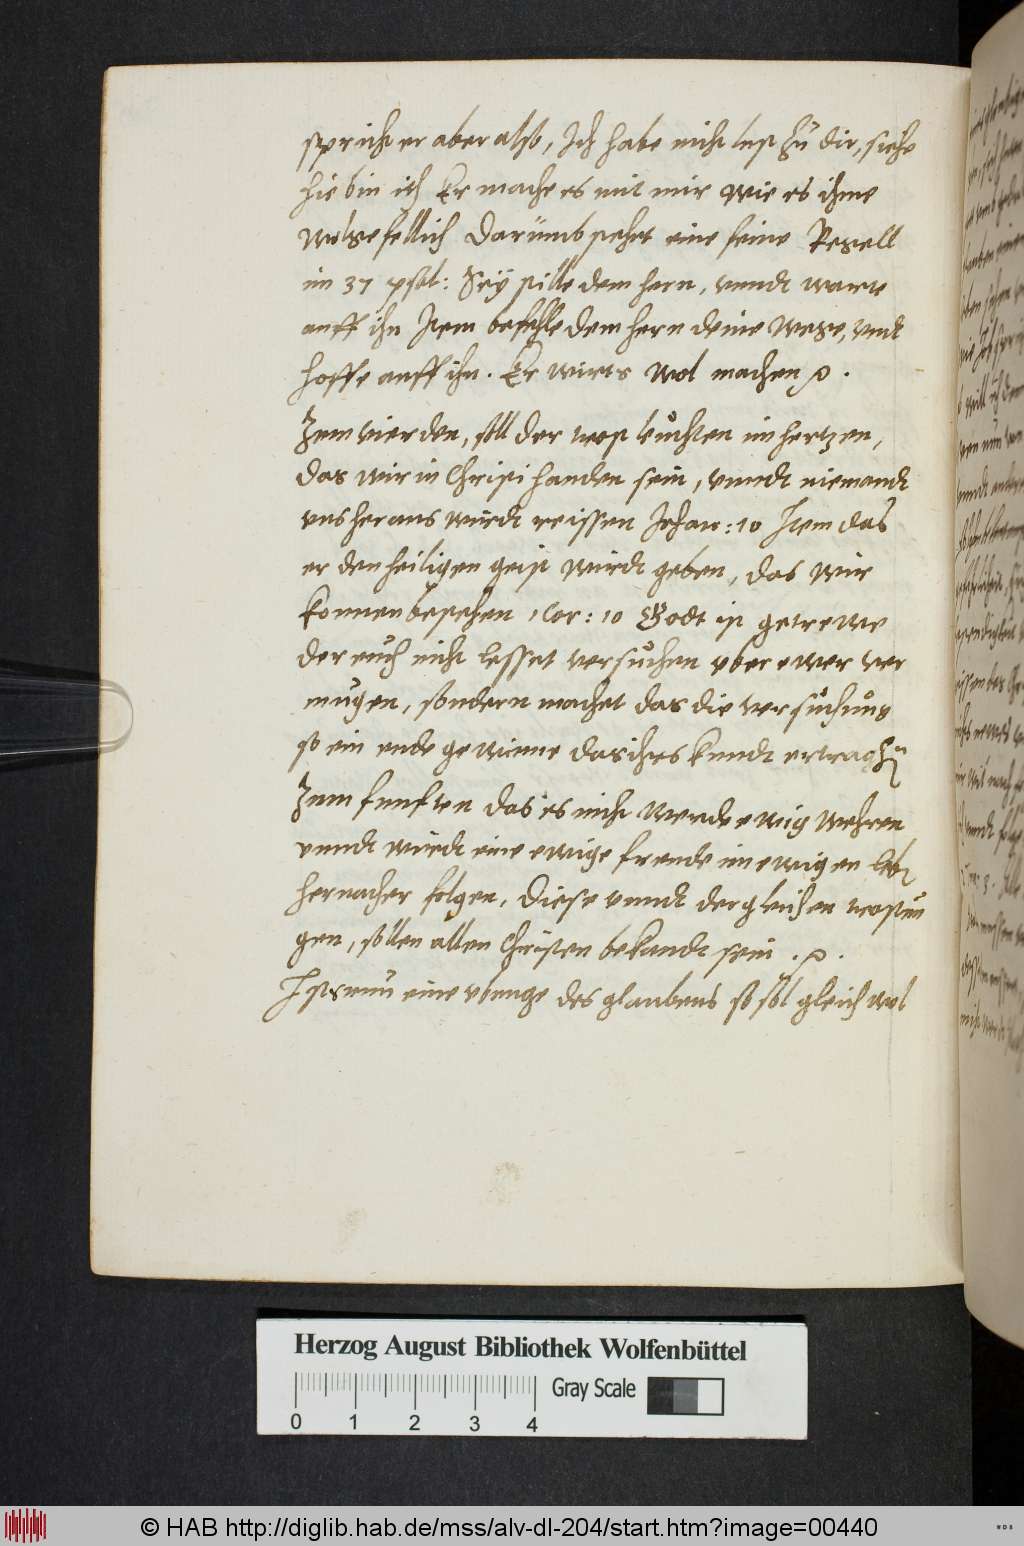 spricht er aber also, Ich habe nicht lust zu dir, siehe
hie bin ich Er mache es mit mir wie es ihme
wolgefellich Darumb stehet eine feine Regell
im 37 psal: Sey stille dem hern, unndt warte
auff ihn Item befehle dem hern deine wege, undt
hoffe auff ihn. Er wirts wol machen.
Zum vierden, soll der trost leuchten im hertzen,
das wir in Christi handen sein, unndt niemandt
uns heraus wurdt reissen Johan: 10 Item das
er den heiligen geist wirdt geben, das wir
konnen bestehen 1 Cor: 10 Godt ist getrewe
der euch nicht lesset versuchen uber ewer ver
mugen, sondern machet das die versuchung
so ein ende gewinne das ihrs kundt ertragen
Zum funften das es nicht werde ewig wehren
unndt wurdt eine ewige freude im ewigen leben
hernacher folgen, Diese unndt dergleichen trostun
gen, sollen allen Christen bekandt sein.
Ists nun eine ubunge des glaubens so sol gleich wol
Herzog August Bibliothek Wolfenbüttel
Gray Scale
0 1 2 3 4
© HAB http://diglib.hab.de/mss/alv-dl-204/start.htm?image=00440